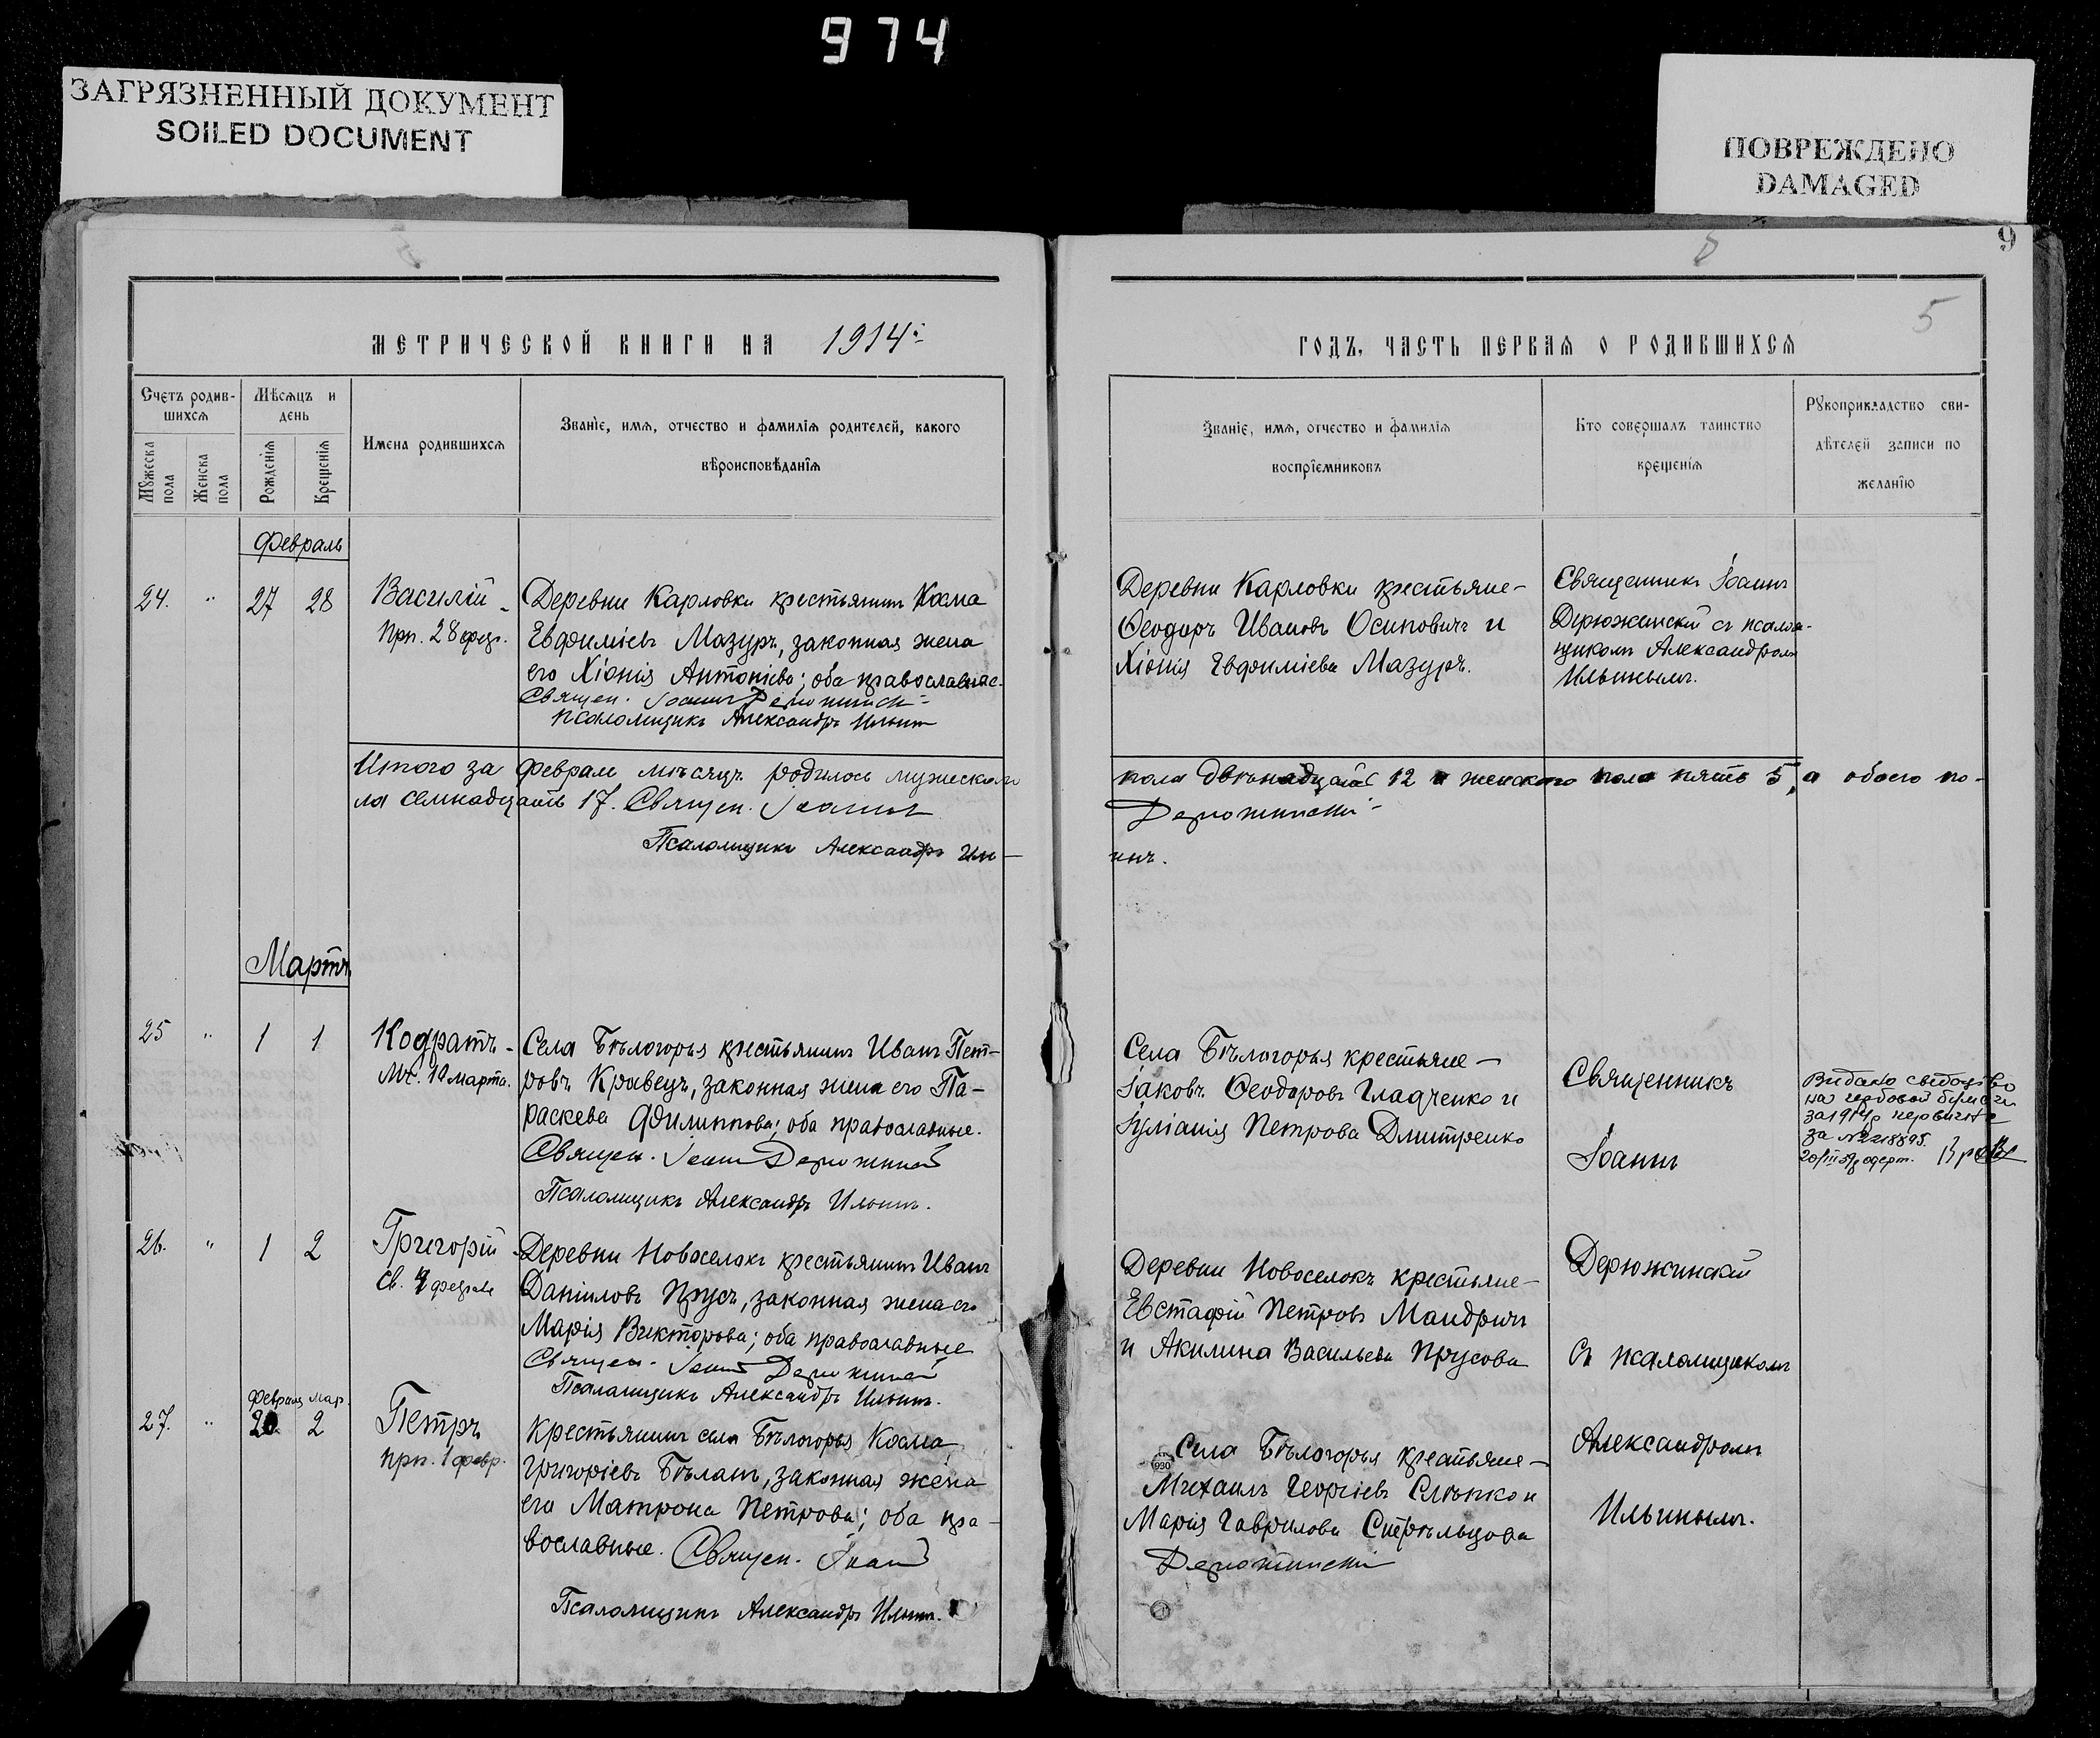 974
ЗАГРЯЗНЕННЫЙ ДОКУМЕНТ
SOILED DOCUMENT
ПОВРЕЖДЕНО
DAMAGED
9
5
МЕТРИЧЕСКОЙ КНИГИ НА 1914й
Счетъ родив-
шихся
Мужеска
пола
Женска
пола
Мѣсяцъ и
день
Рожденія
Крещенія
Имена родившихся
Званіе, имя, отчество и фамилія родителей, какого
вѣроисповѣданія
Февраль
24. " 27 28
Василій -
прп. 28 февр.
Деревни Карловки крестьянинъ Косма
Евфиміевъ Мазуръ, законная жена
его Хіонія Антоніева; оба православные.
Священ. Іоаннъ Дерюжинскій
псаломщикъ Александръ Ильинъ
Итого за Февраль мѣсяцъ родилось мужеского
ла семнадцать 17. Священ. Іоаннъ
Псаломщикъ Александръ Иль-
Мартъ
25 " 1 1
Кодратъ -
мч. 10 марта.
Села Бѣлогорья крестьянинъ Иванъ Пет-
ровъ Кравецъ, законная жена его Па-
раскева Филиппова; оба православные.
Священ. Іоаннъ Дерюжинскій
Псаломщикъ Александръ Ильинъ.
26. " 1 2
Григорій -
св. февраля
Деревни Новоселокъ крестьянинъ Иванъ
Даніиловъ Прусъ, законная жена его
Марія Викторова; оба православные
Священ. Іоаннъ Дерюжинскій
Псаломщикъ Александръ Ильинъ.
Февраля Мар.
27. " 2
Петръ
прп. 1 февр.
Крестьянинъ села Бѣлогорья Косма
Григоріевъ Бѣланъ, законная жена
его Матрона Петрова; оба пра-
вославные. Священ. Іоаннъ
Псаломщикъ Александръ Ильинъ.
ГОДЪ, ЧАСТЬ ПЕРВАЯ О РОДИВШИХСЯ
Званіе, имя, отчество и фамилія
воспріемниковъ
Кто совершалъ таинство
крещенія
Рукоприкладство сви-
дѣтелей записи по
желанію
Деревни Карловки крестьяне-
Ѳеодоръ Ивановъ Осиповичъ и
Хіонія Евфиміева Мазуръ.
Священникъ Іоаннъ
Дерюжинскій съ псалом-
щикомъ Александромъ
Ильинымъ.
пола двѣнадцать 12 и женского пола пять 5, а обоего по-
Дерюжинскій
инъ.
Села Бѣлогорья крестьяне -
Іаковъ Ѳеодоровъ Гладченко и
Іуліанія Петрова Дмитренко
Священникъ
Іоаннъ
Видано свідоцтво
на гербовой бумаги
за 1914р первичне
за №
одерт.
Деревни Новоселокъ крестьяне-
Евстафій Петровъ Мандричъ
и Акилина Васильева Прусова
Дерюжинскій
съ псаломщикомъ
930
Села Бѣлогорья крестьяне-
Михаилъ Георгіевъ Слѣпко и
Марія Гаврилова Стрѣльцова
Дерюжинскій
Александромъ
Ильинымъ.